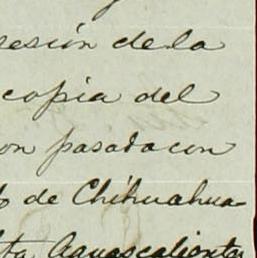 sesión de la
copia del
on pasada con
o de Chihuahua
ta Aguascalientes